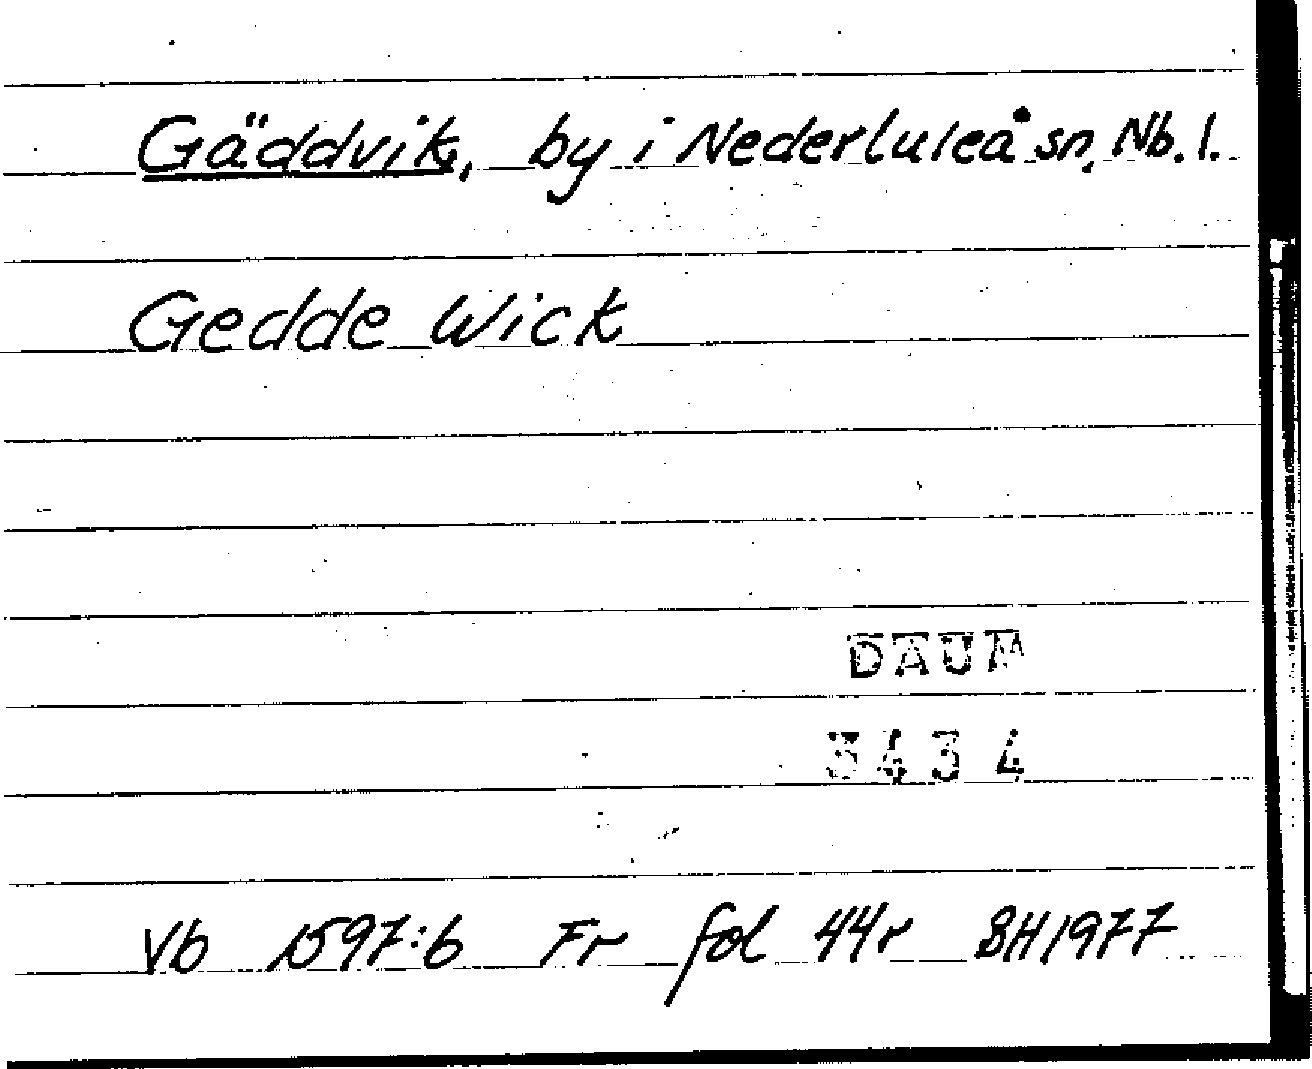 Gäddvik, by i Nederluleå sn, Nb. l.
Gedde Wick
DAUM
3434
Vb 1597:6 Fr fol 44r BH1977